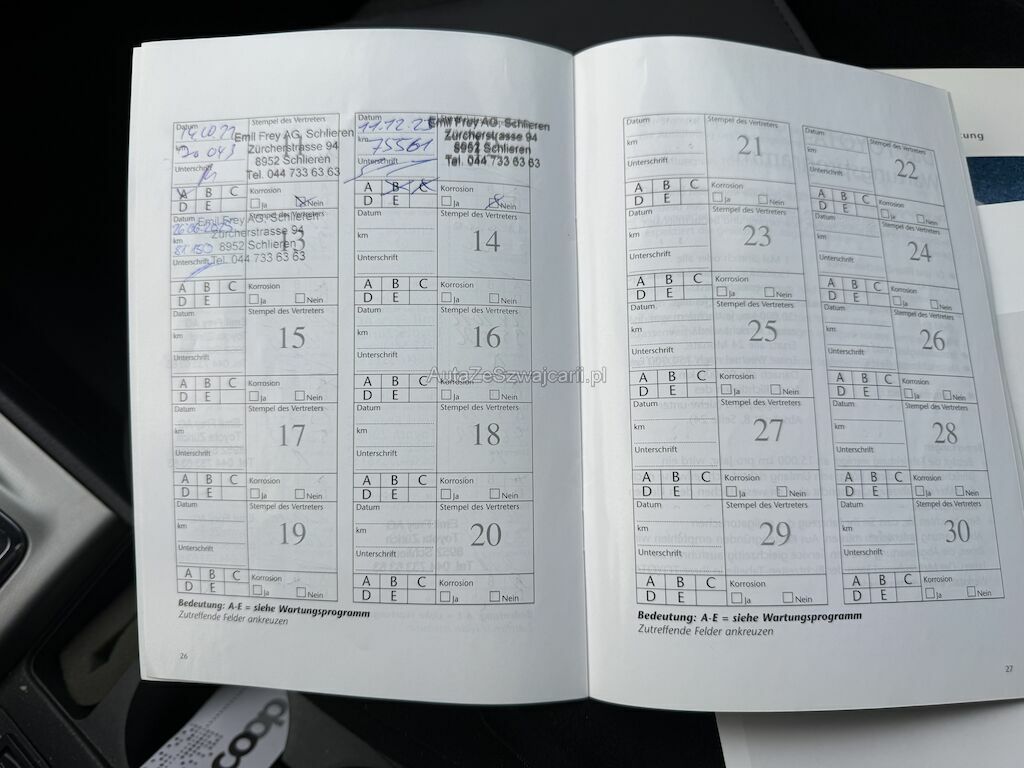 Datum
Stempel des Vertreters
Emil Frey AG, Schlieren
Zürcherstrasse 94
8952 Schlieren
Tel. 044 733 63 63
km
Unterschrift
A B C
D E
Korrosion
Ja Nein
Datum
11.12.23
km
75561
Unterschrift
Emil Frey AG, Schlieren
Zürcherstrasse 94
8952 Schlieren
Tel. 044 733 63 63
A B C
D E
Korrosion
Ja Nein
Datum
Stempel des Vertreters
Emil Frey AG, Schlieren
Zürcherstrasse 94
8952 Schlieren
Tel. 044 733 63 63
km
Unterschrift
13
A B C
D E
Korrosion
Ja Nein
Datum
Stempel des Vertreters
km
Unterschrift
14
A B C
D E
Korrosion
Ja Nein
Datum
Stempel des Vertreters
km
Unterschrift
15
A B C
D E
Korrosion
Ja Nein
Datum
Stempel des Vertreters
km
Unterschrift
16
A B C
D E
Korrosion
Ja Nein
Datum
Stempel des Vertreters
km
Unterschrift
17
A B C
D E
Korrosion
Ja Nein
Datum
Stempel des Vertreters
km
Unterschrift
18
A B C
D E
Korrosion
Ja Nein
Datum
Stempel des Vertreters
km
Unterschrift
19
A B C
D E
Korrosion
Ja Nein
Datum
Stempel des Vertreters
km
Unterschrift
20
A B C
D E
Korrosion
Ja Nein
Bedeutung: A-E = siehe Wartungsprogramm
Zutreffende Felder ankreuzen
26
Datum
Stempel des Vertreters
km
Unterschrift
21
A B C
D E
Korrosion
Ja Nein
Datum
Stempel des Vertreters
km
Unterschrift
22
A B C
D E
Korrosion
Ja Nein
Datum
Stempel des Vertreters
km
Unterschrift
23
A B C
D E
Korrosion
Ja Nein
Datum
Stempel des Vertreters
km
Unterschrift
24
A B C
D E
Korrosion
Ja Nein
Datum
Stempel des Vertreters
km
Unterschrift
25
A B C
D E
Korrosion
Ja Nein
Datum
Stempel des Vertreters
km
Unterschrift
26
A B C
D E
Korrosion
Ja Nein
Datum
Stempel des Vertreters
km
Unterschrift
27
A B C
D E
Korrosion
Ja Nein
Datum
Stempel des Vertreters
km
Unterschrift
28
A B C
D E
Korrosion
Ja Nein
Datum
Stempel des Vertreters
km
Unterschrift
29
A B C
D E
Korrosion
Ja Nein
Datum
Stempel des Vertreters
km
Unterschrift
30
A B C
D E
Korrosion
Ja Nein
Bedeutung: A-E = siehe Wartungsprogramm
Zutreffende Felder ankreuzen
27
AutaZeSzwajcarii.pl
coop